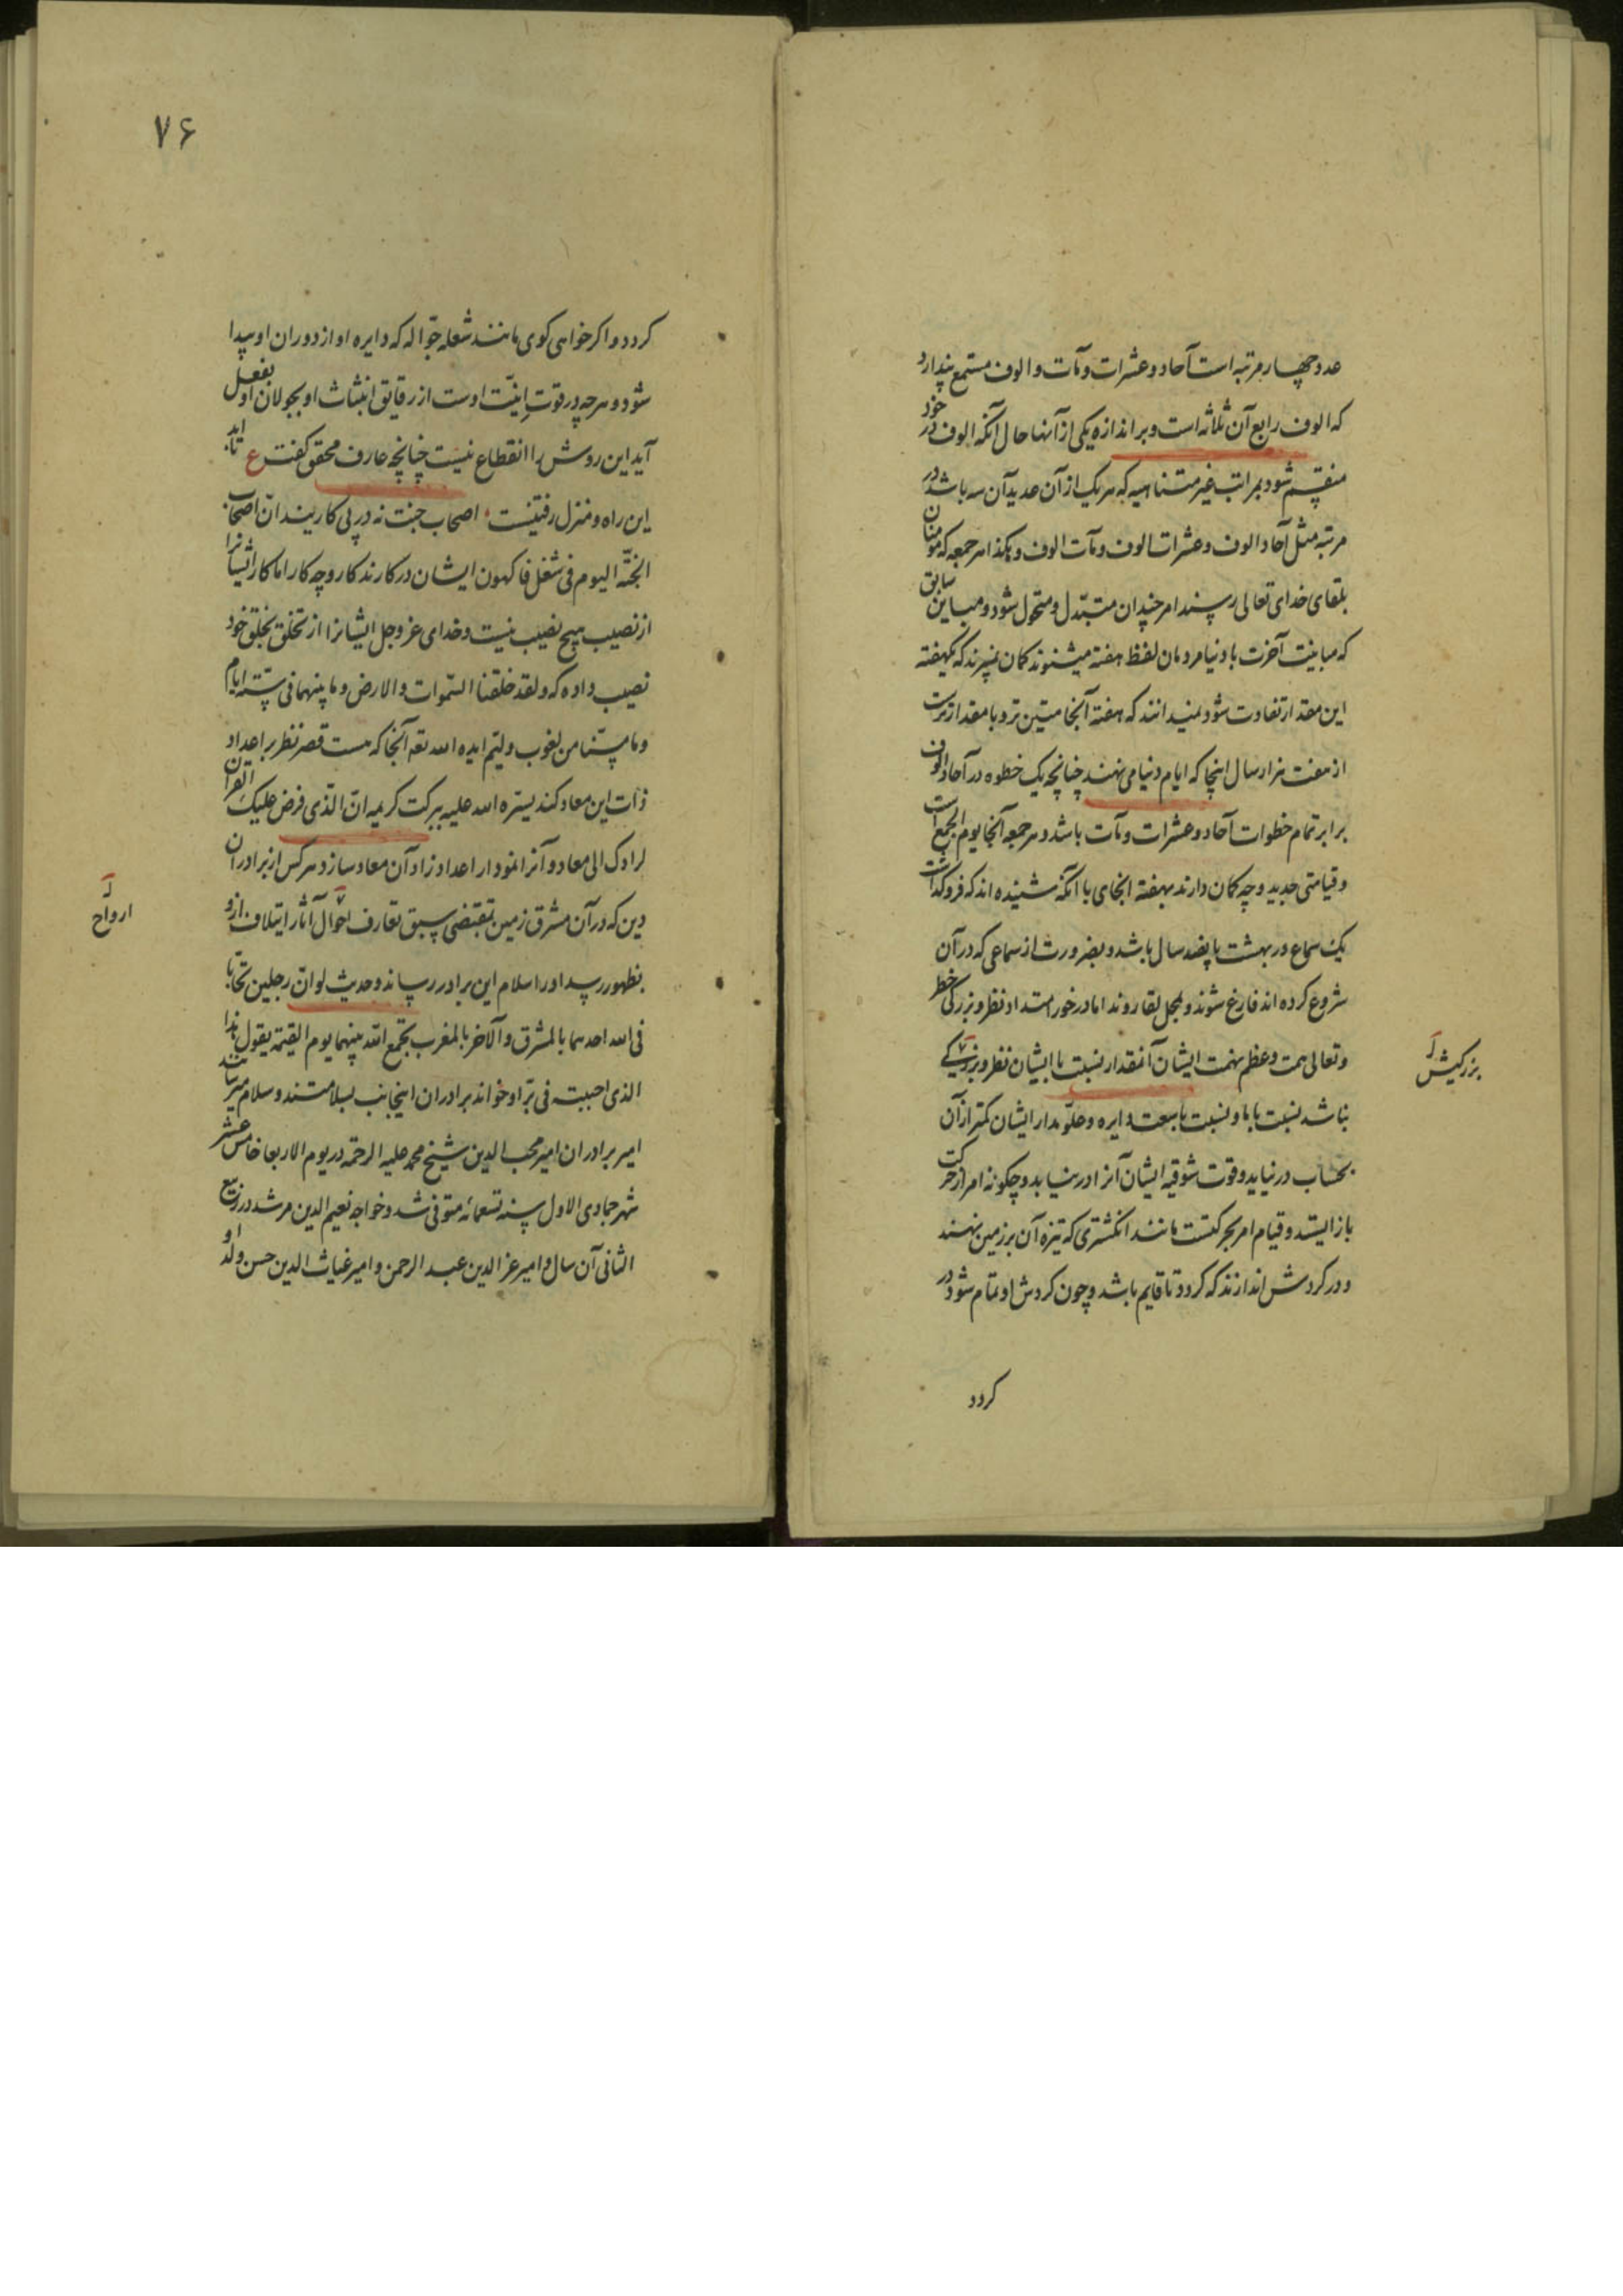 عدد چهار مرتبه است آحاد و عشرات و مآت و الوف مستمع پندارد
که الوف رابع آن ثلاثه است و بر اندازه یکی از آنها حال آنکه الوف در خود
منقسم شود بمراتب غیر متناهیه که هر یک از آن عدید آن سه باشد در
مرتبه مثل آحاد الوف و عشرات الوف و مآت الوف و هکذا هر جمعه که مومنان
بلقای خدای تعالی رسند امر چندان متبدل و متحول شود و مباین سابق
که مباینت آخرت با دنیا مردمان لفظ هفته میشنوند کمان نمیبرند که بهفته
این مقدار تفاوت شود نمیدانند که هفته آنجا متین تر و با مقدارترست
از هفت هزار سال اینجا که ایام دنیا می نهند چنانچه یک خطوه در آحاد الوف
برابر تمام خطوات آحاد و عشرات و مآت باشد و هر جمعه آنجا یوم الجمع است
و قیامتی جدید و چه کمان دارند بهفته آنجای با آنکه شنیده اند که فروکذاشت
یک سماع در بهشت پانصد سال باشد و بضرورت از سماعی که در آن
شروع کرده اند فارغ شوند و بمحل لقا روند اما در خور امتداد نظر و بزرکی خطر
و تعالی همت و عظم نهمت ایشان آنمقدار نسبت با ایشان نظر و بزرکی
بزرکیش
نباشد نسبت با ما و نسبت با سعت دایره و علو مدار ایشان کمتر از آن
بحساب در نیاید و قوت شوقیه ایشان آنرا در نیابد و چکونه امر از حرکت
باز ایستد و قیام امر بحرکتست مانند انکشتری که تیزه آن بر زمین نهند
و در کردش اندازند که کردد تا قایم باشد و چون کردش او تمام شود در
کردد
۷۶
کردد و اکر خواهی کوی مانند شعله جواله که دایره او از دوران او پیدا
شود و هر چه در قوت انیت اوست از رقایق انبثاث او بجولان او بفعل
آید این روش را انقطاع نیست چنانچه عارف محقق کفت ع تا ابد
این راه و منزل رفتنیست اصحاب جنت نه در پی کاریند ان اصحاب
الجنة الیوم فی شغل فاکهون ایشان در کارند کار و چه کار اما کار ایشانرا
از نصیب هیچ نصیب نیست و خدای عز و جل ایشانرا از تخلق بخلق خود
نصیب داده که ولقد خلقنا السموات والارض وما بینهما فی ستة ایام
وما مسنا من لغوب ولیتم ایده الله تعه آنجا که هست قصر نظر بر اعداد
ذات این معاد کند یسره الله علیه ببرکت کریمه ان الذی فرض علیک القرآن
لرادک الی معاد و آنرا نمودار اعداد زاد آن معاد سازد و هر کس از برادران
دین که در آن مشرق زمین بمقتضی سبق تعارف احوال آثار ایتلاف ازو
ارواح
بظهور رسد او را سلام این برادر رساند و حدیث لو ان رجلین تحابا
فی الله احدهما بالمشرق والآخر بالمغرب یجمع الله بینهما یوم القیمة یقول هذا
الذی احببته فی بر او خواند برادران اینجانب بسلامتند و سلام میرسانند
امیر برادران امیر محب الدین شیخ محمد علیه الرحمه در یوم الاربعا خامس عشر
شهر جمادی الاول سنه تسعمائه متوفی شد و خواجه نعیم الدین مرشد در ربیع
الثانی آن سال و امیر عز الدین عبد الرحمن و امیر غیاث الدین حسن ولد او